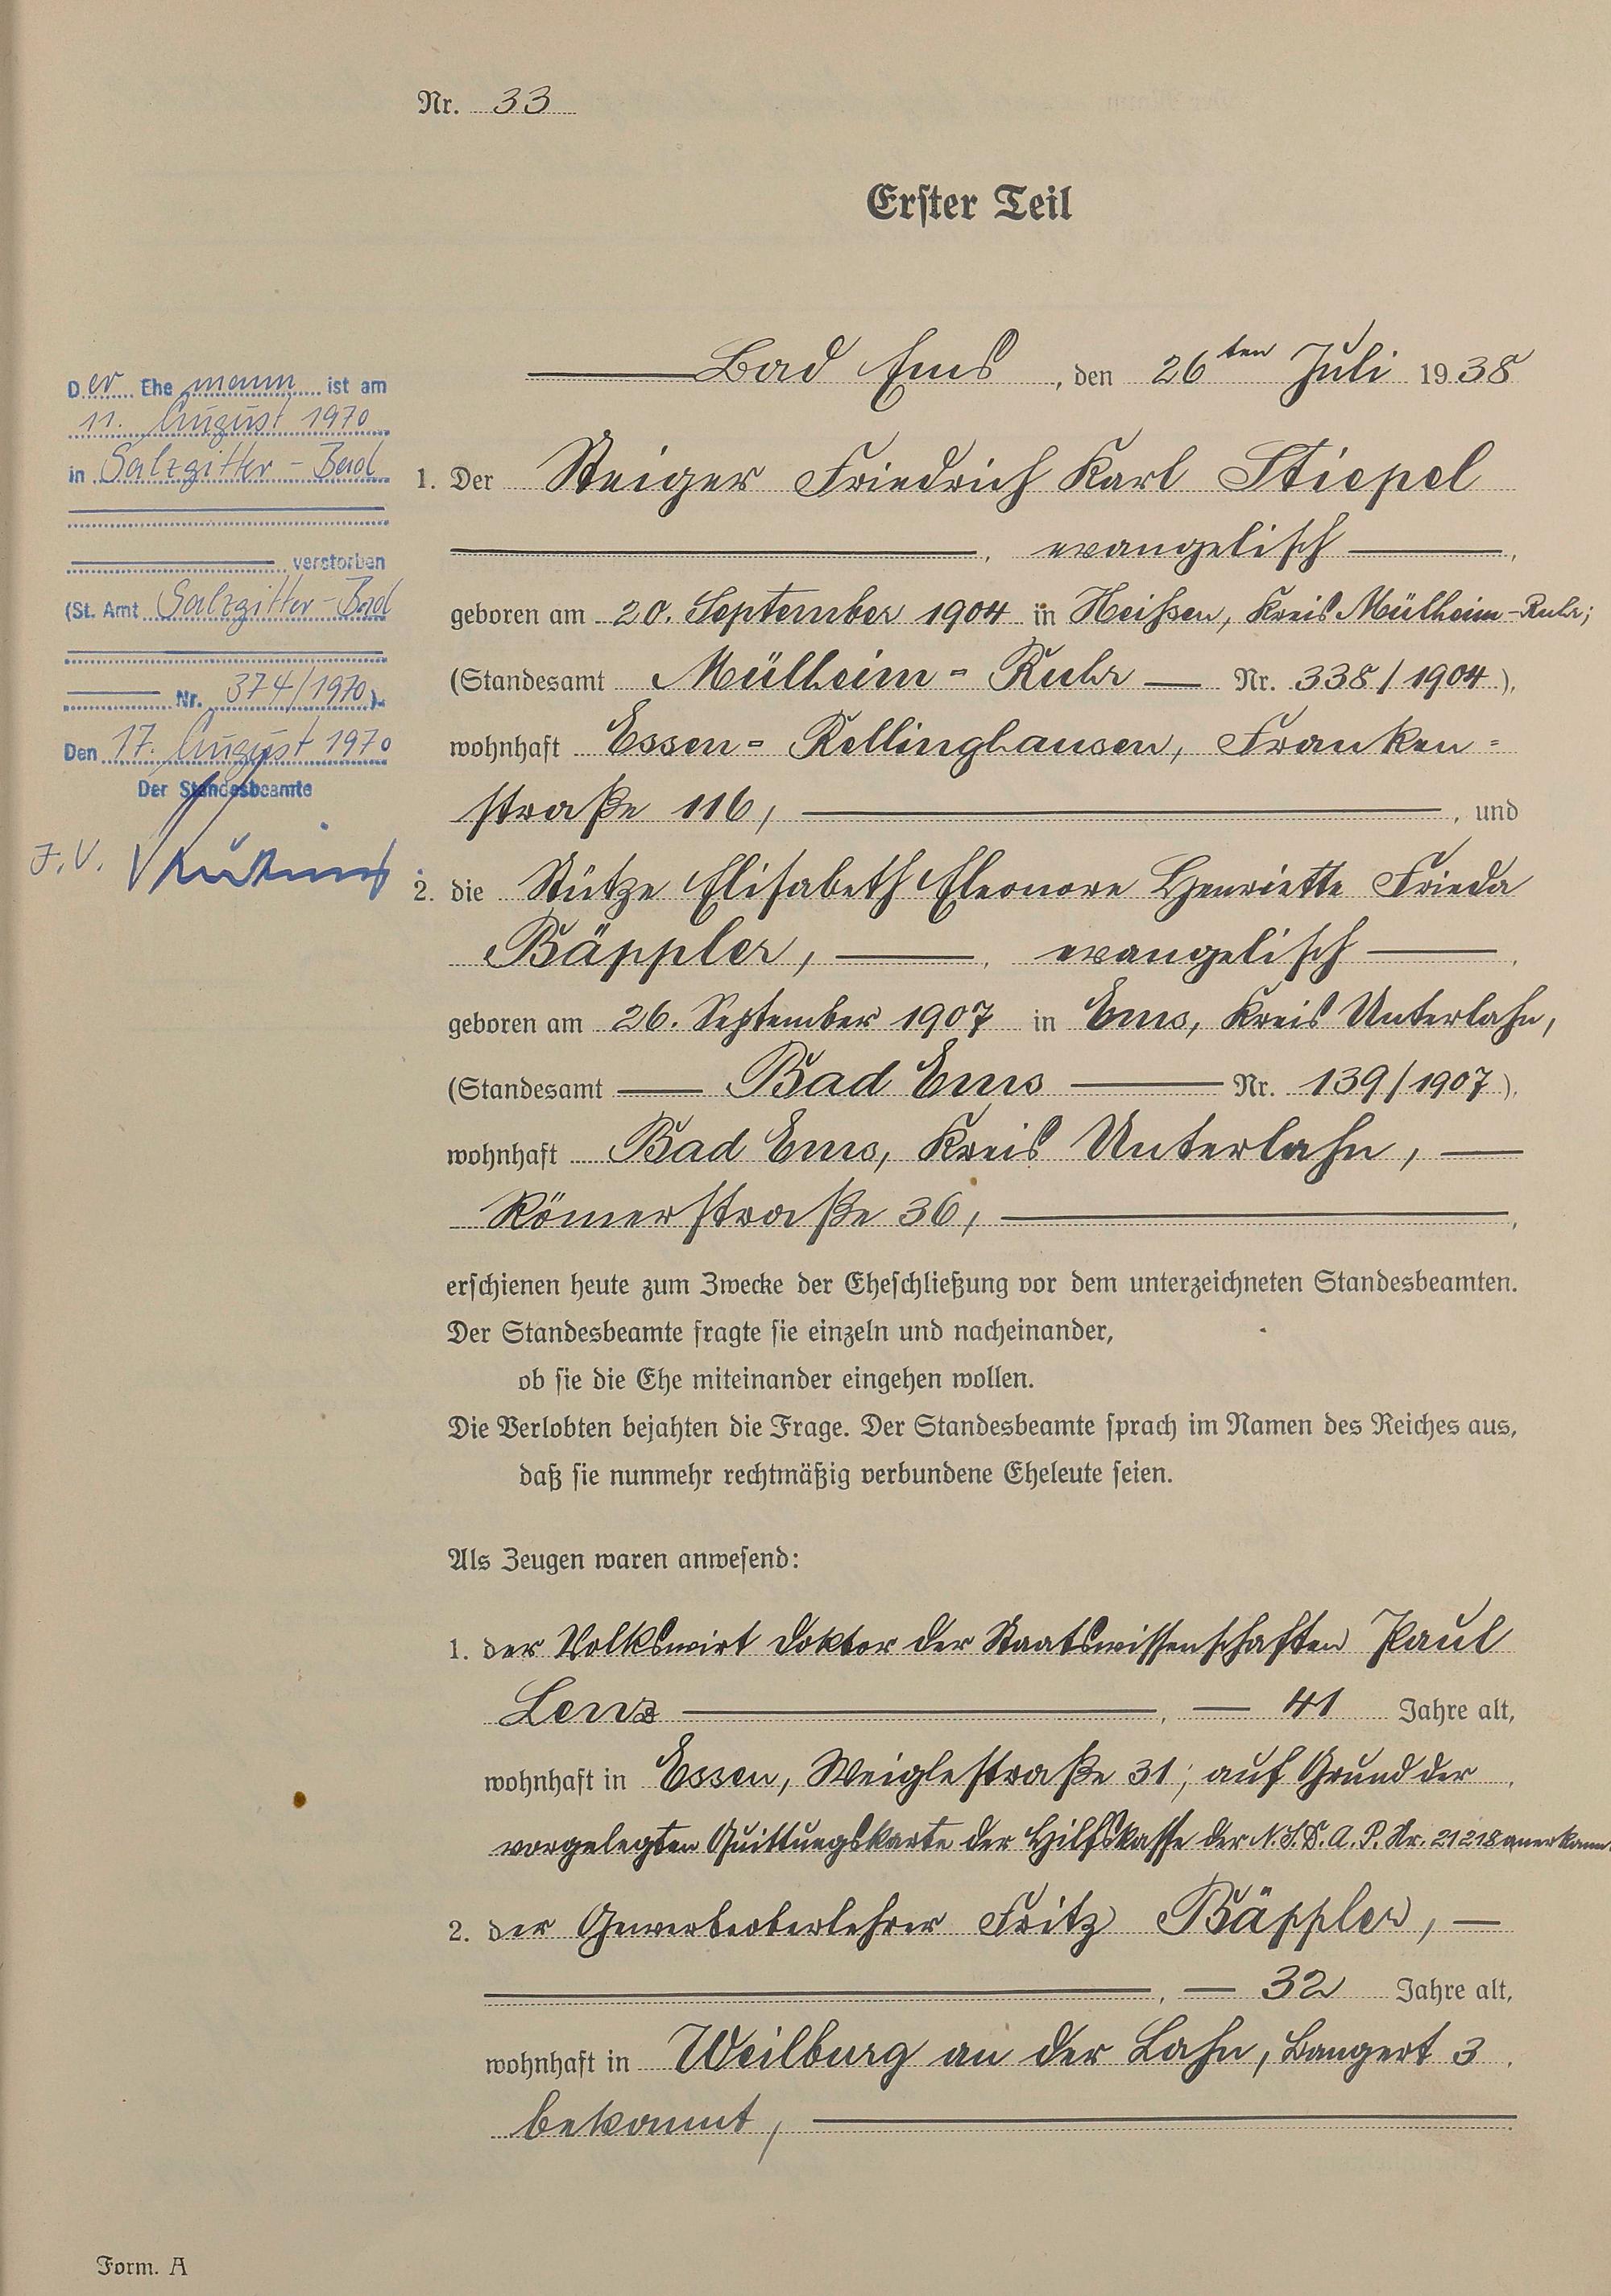 Nr. 33
Erster Teil
Bad Ems, den 26ten Juli 1938
Der Ehemann ist am
11. August 1970
in Salzgitter-Bad
verstorben
(St. Amt Salzgitter-Bad
Nr. 374/1970).
Den 17. August 1970
Der Standesbeamte
J.V.
1. Der Steiger Friedrich Karl Stiepel
, evangelisch ,
geboren am 20. September 1904 in Heißen, Kreis Mülheim-Ruhr;
(Standesamt Mülheim-Ruhr Nr. 338/1904),
wohnhaft Essen-Rellinghausen, Franken-
straße 116, , und
2. die Stütze Elisabeth Eleonore Henriette Frieda
Bäppler, , evangelisch ,
geboren am 26. September 1907 in Ems, Kreis Unterlahn,
(Standesamt Bad Ems Nr. 139/1907),
wohnhaft Bad Ems, Kreis Unterlahn,
Römerstraße 36, ,
erschienen heute zum Zwecke der Eheschließung vor dem unterzeichneten Standesbeamten.
Der Standesbeamte fragte sie einzeln und nacheinander,
ob sie die Ehe miteinander eingehen wollen.
Die Verlobten bejahten die Frage. Der Standesbeamte sprach im Namen des Reiches aus,
daß sie nunmehr rechtmäßig verbundene Eheleute seien.
Als Zeugen waren anwesend:
1. der Volkswirt Doktor der Staatswissenschaften Paul
Lenz , 41 Jahre alt,
wohnhaft in Essen, Weiglestraße 31; auf Grund der ,
vorgelegten Quittungskarte der Hilfskasse der N.S.D.A.P. Nr. 21218 anerkannt
2. der Gewerbeoberlehrer Fritz Bäppler,
, 32 Jahre alt,
wohnhaft in Weilburg an der Lahn, Bangert 3 ,
bekannt, .
Form. A